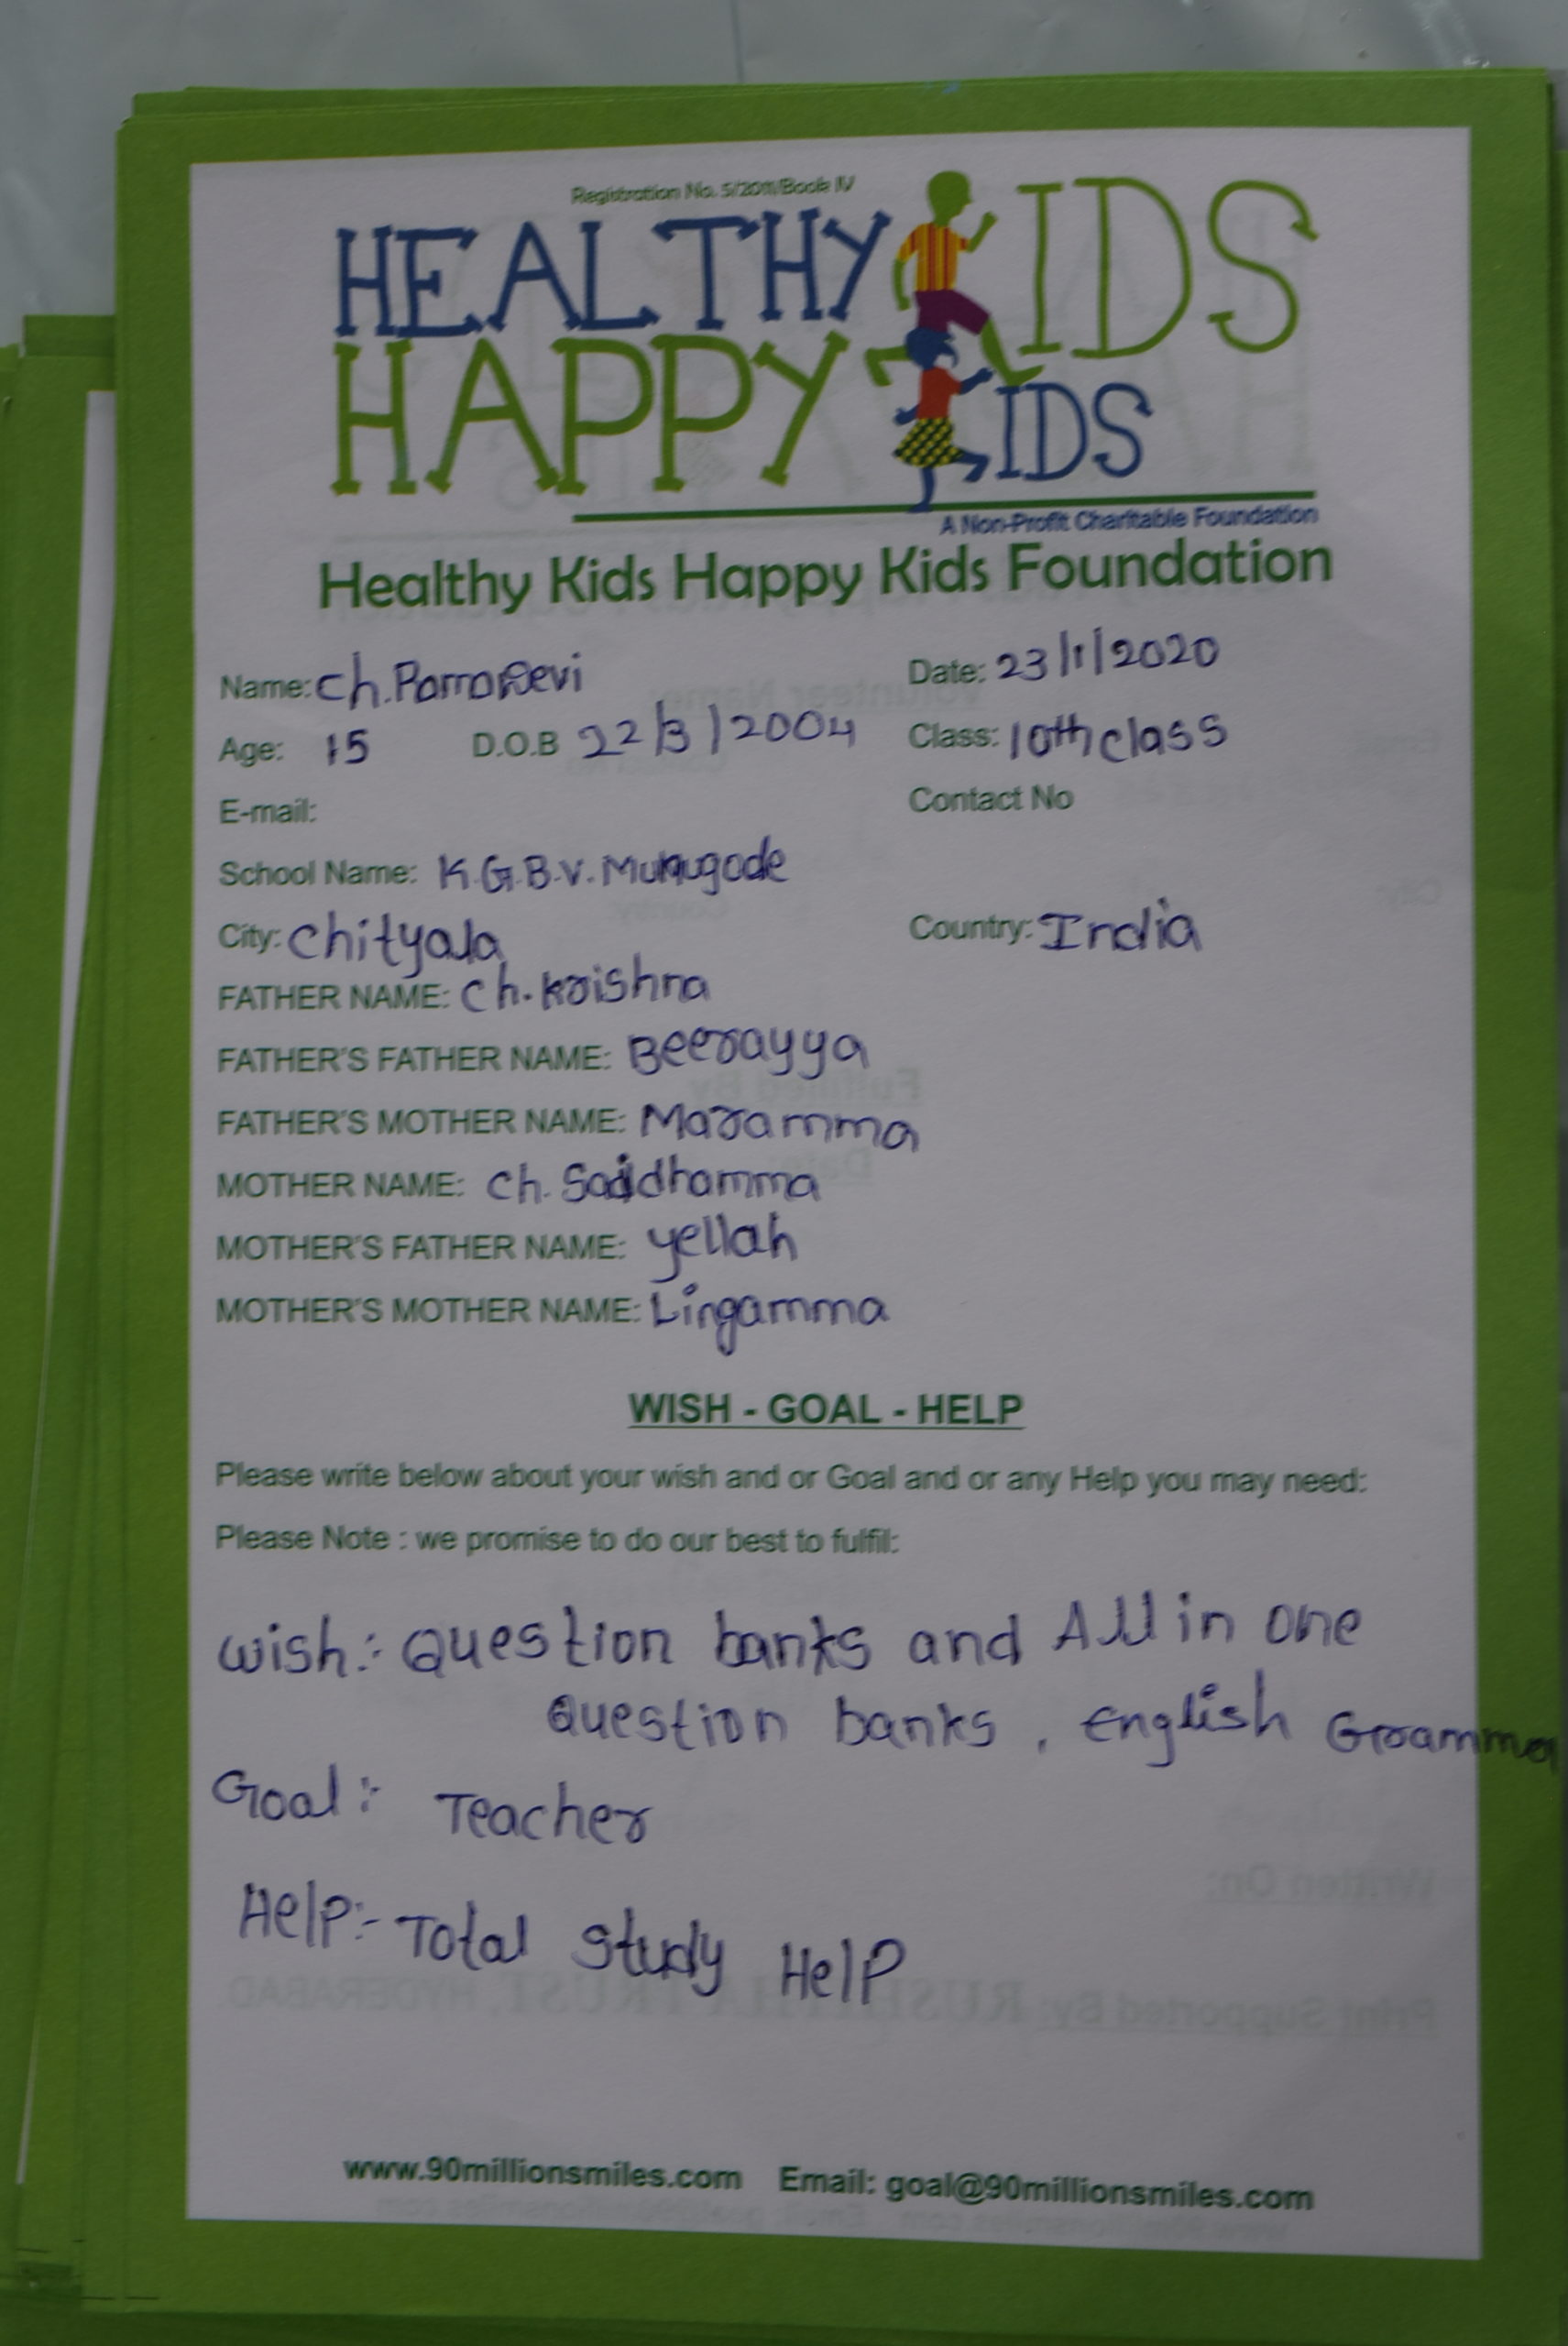 Registration No. 5/2011/Book IV
HEALTHY KIDS
HAPPY KIDS
A Non-Profit Charitable Foundation
Healthy Kids Happy Kids Foundation
Name: Ch. Date: 23/1/2020
Age: 15 D.O.B 22/3/2004 Class: 10th class
E-mail: Contact No
School Name: K.G.B.V. Munugode
City: Chityala Country: India
FATHER NAME: Ch. Krishna
FATHER'S FATHER NAME: Beerayya
FATHER'S MOTHER NAME: Maramma
MOTHER NAME: Ch. Saidhamma
MOTHER'S FATHER NAME: yellah
MOTHER'S MOTHER NAME: Lingamma
WISH - GOAL - HELP
Please write below about your wish and or Goal and or any Help you may need:
Please Note : we promise to do our best to fulfil:
Wish:- Question banks and All in one
Question banks, English Gramma
Goal:- Teacher
Help:- Total study Help
www.90millionsmiles.com Email: goal@90millionsmiles.com